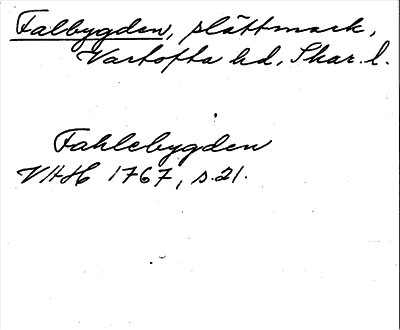 Falbygden, slättmark,
Vartofta hd, Skar. l.
Fahlebygden
VHH 1767, s. 21.